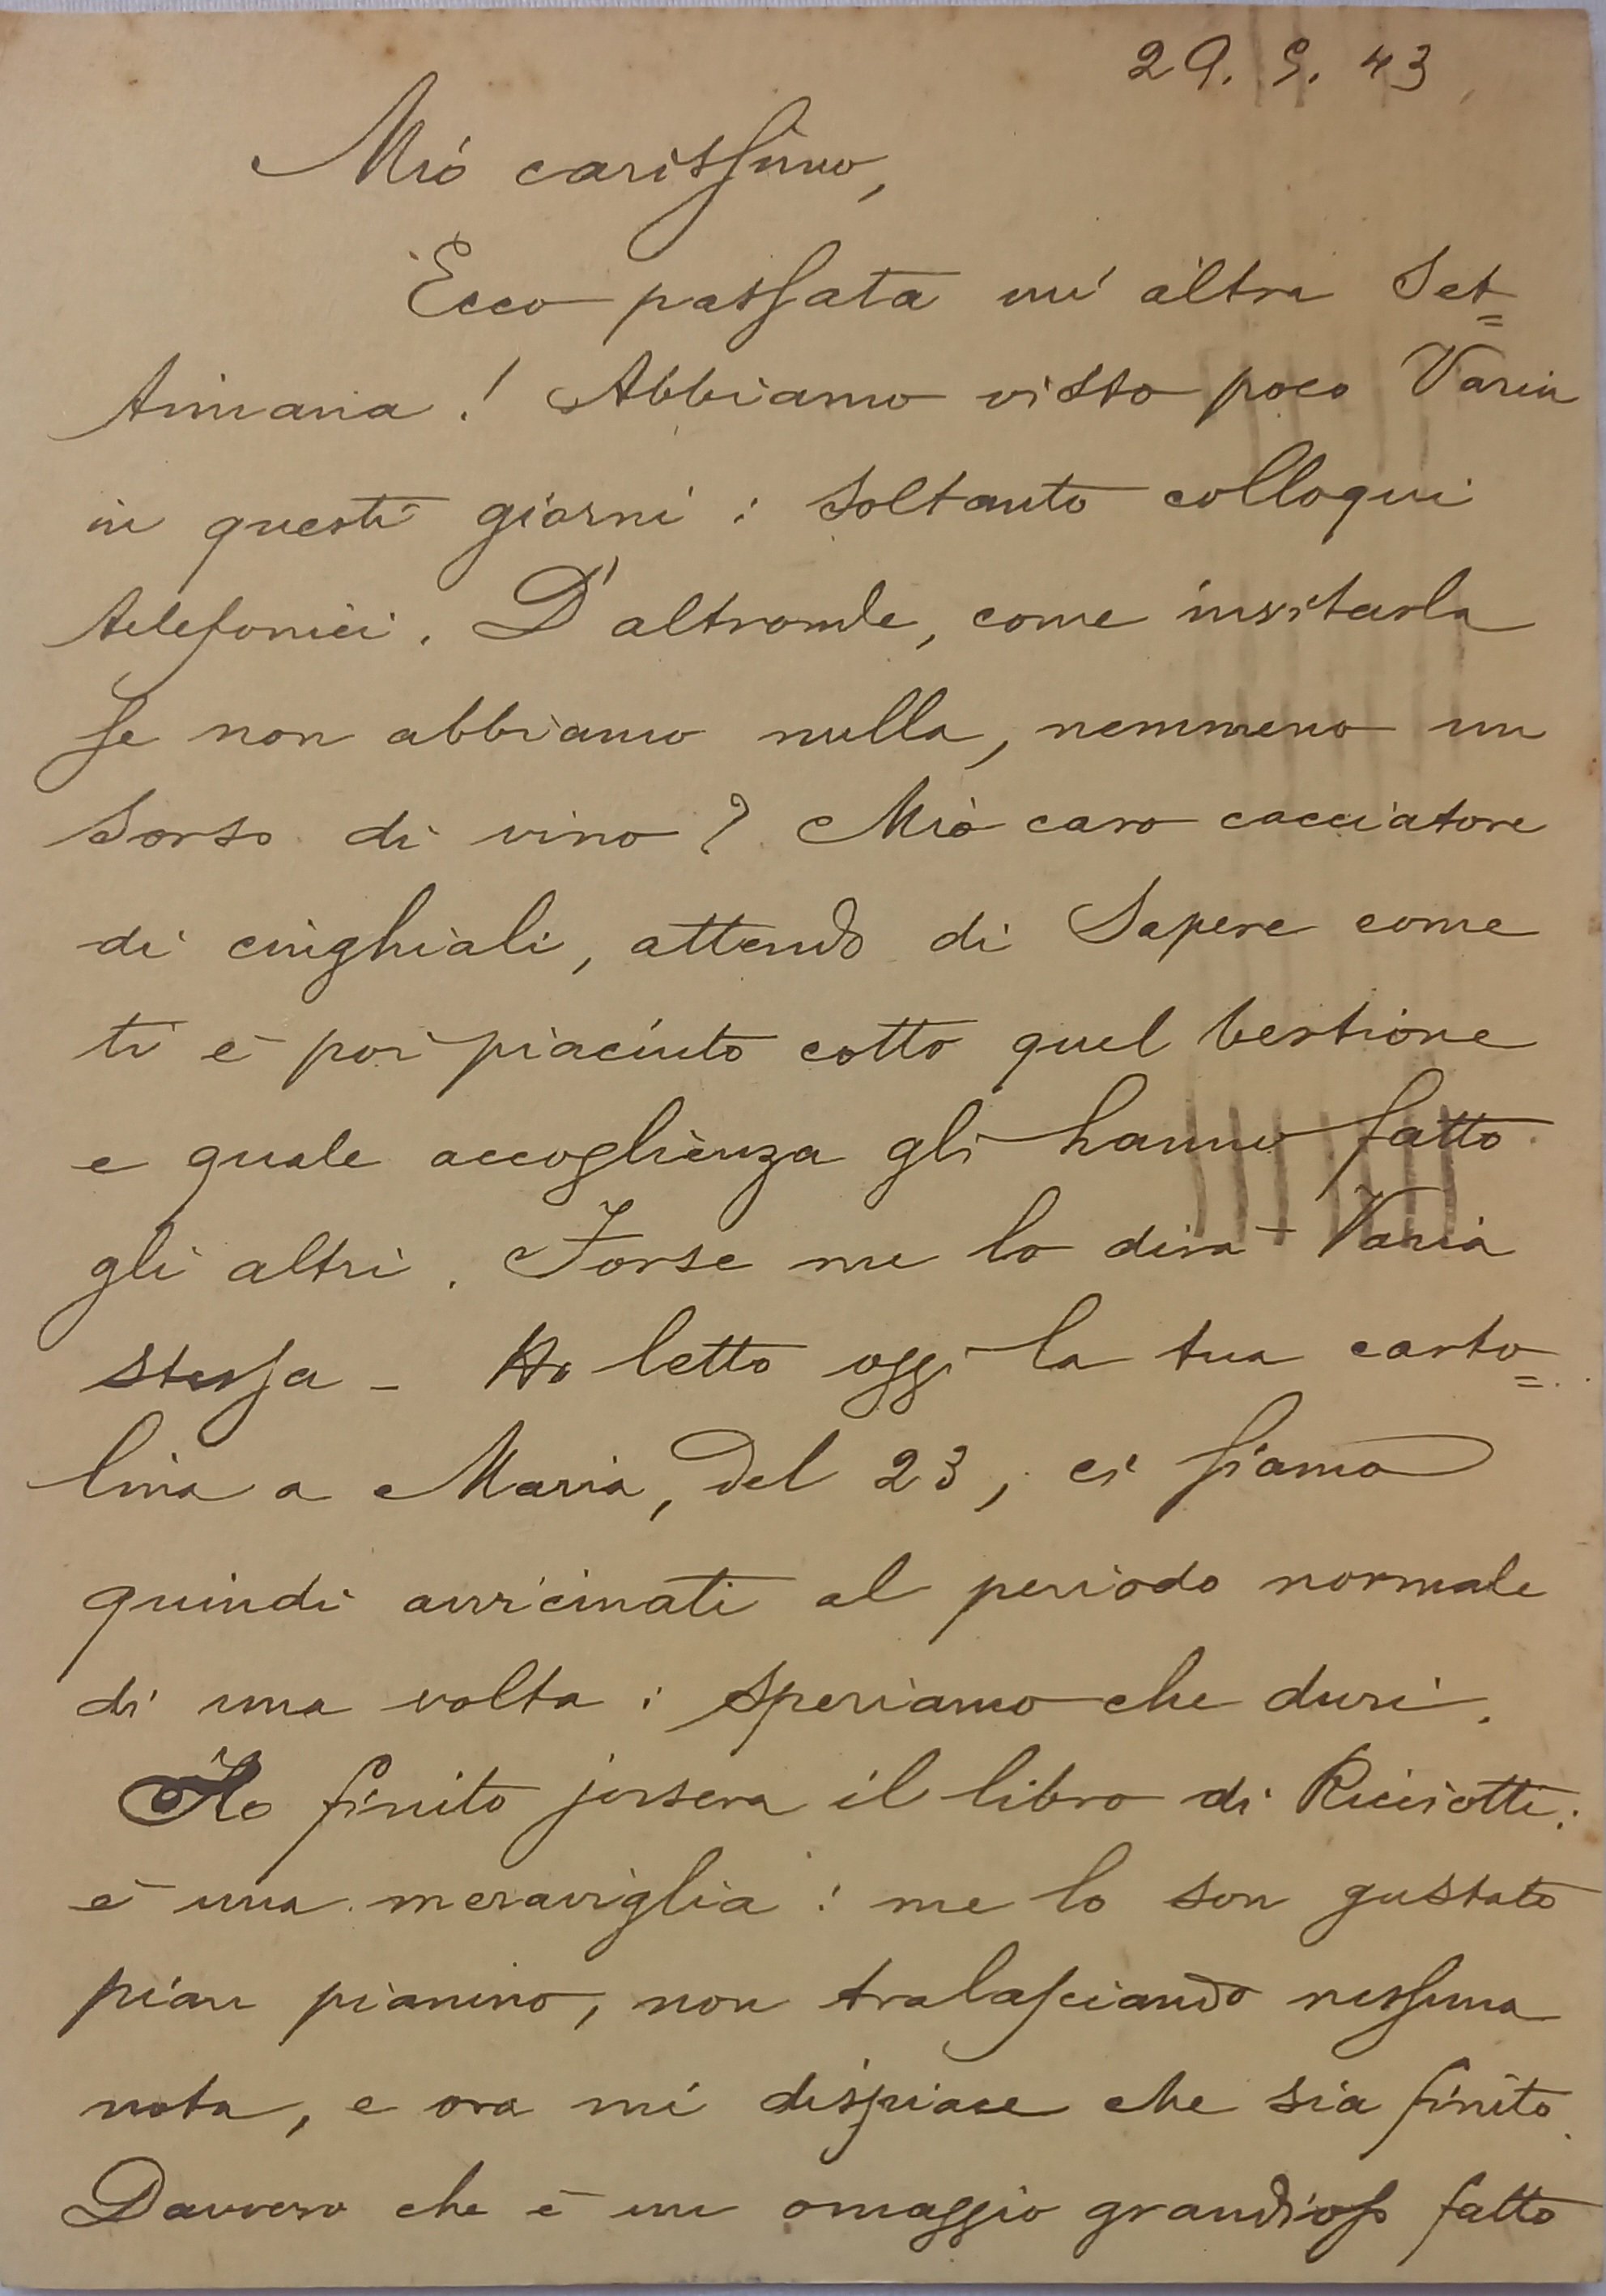 29. 5. 43
Mio carissimo,
Ecco passata un'altra set=
timana! Abbiamo visto poco Varia
in questi giorni: soltanto colloqui
telefonici. D'altronde, come invitarla
se non abbiamo nulla, nemmeno un
sorso di vino? Mio caro cacciatore
di cinghiali, attendo di sapere come
ti è poi piaciuto cotto quel bestione
e quale accoglienza gli hanno fatto
gli altri. Forse me lo dirà Varia
stessa - Ho letto oggi la tua carto=
lina a Maria, del 23, ci siamo
quindi avvicinati al periodo normale
di una volta: speriamo che duri.
Ho finito jersera il libro di Ricciotti:
è una meraviglia: me lo son gustato
pian pianino, non tralasciando nessuna
nota, e ora mi dispiace che sia finito.
Davvero che è un omaggio grandioso fatto